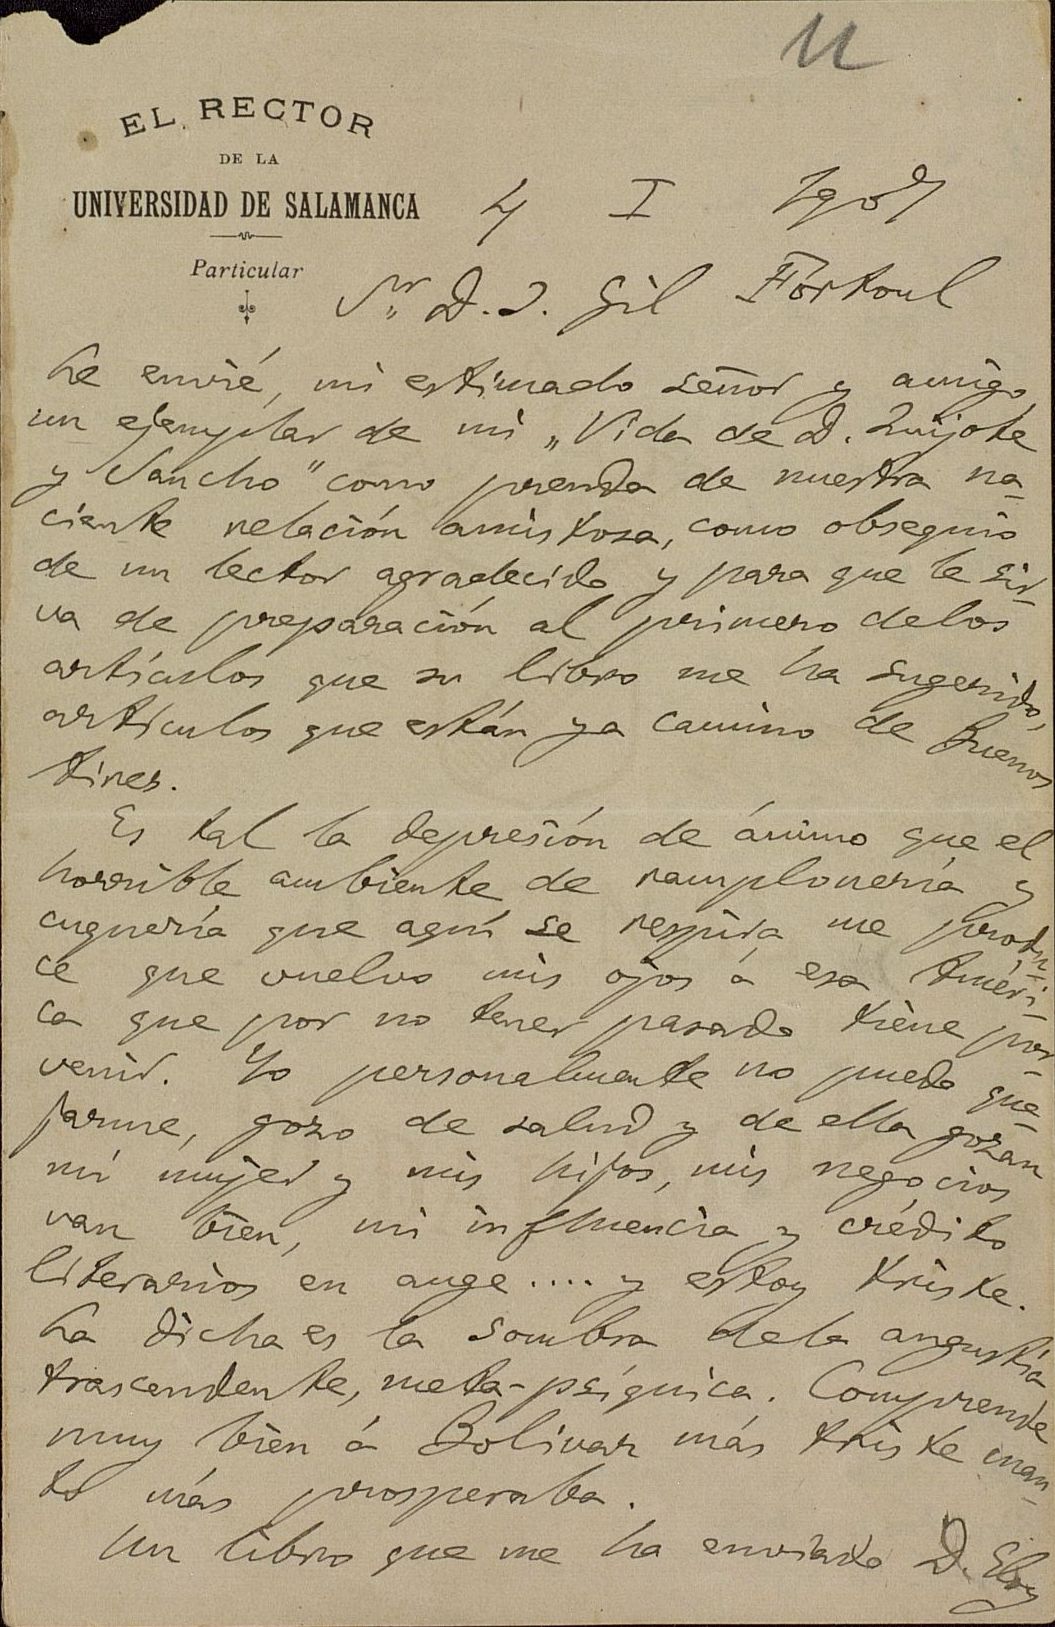 11
EL RECTOR
DE LA
UNIVERSIDAD DE SALAMANCA
Particular
4 I 1907
Sr. D. J. Gil Fortoul
Le envié, mi estimado señor y amigo,
un ejemplar de mi „Vida de D. Quijote
y Sancho” como prenda de nuestra na-
ciente relación amistosa, como obsequio
de un lector agradecido y para que le sir-
va de preparación al primero de los
artículos que su libro me ha sugerido,
artículos que están ya camino de Buenos
Aires.
Es tal la depresión de ánimo que el
horrible ambiente de ramplonería y
cuquería que aquí se respira me produ-
ce que vuelvo mis ojos á esa Améri-
ca que por no tener pasado tiene por-
venir. Yo personalmente no puedo que-
jarme, gozo de salud y de ella gozan
mi mujer y mis hijos, mis negocios
van bien, mi influencia y crédito
literarios en auge .... y estoy triste.
La dicha es la sombra de la angustia
trascendente, meta-psíquica. Comprendo
muy bien á Bolivar más triste cuan-
to más prosperaba.
Un libro que me ha enviado D. Eloy